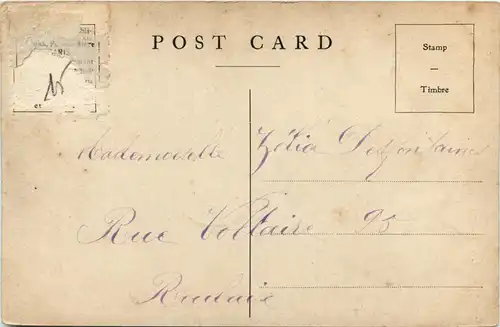 POST CARD
Stamp
Timbre
15
et
Mademoiselle Zélia Desfontaines
Rue Voltaire 95
Roubaix